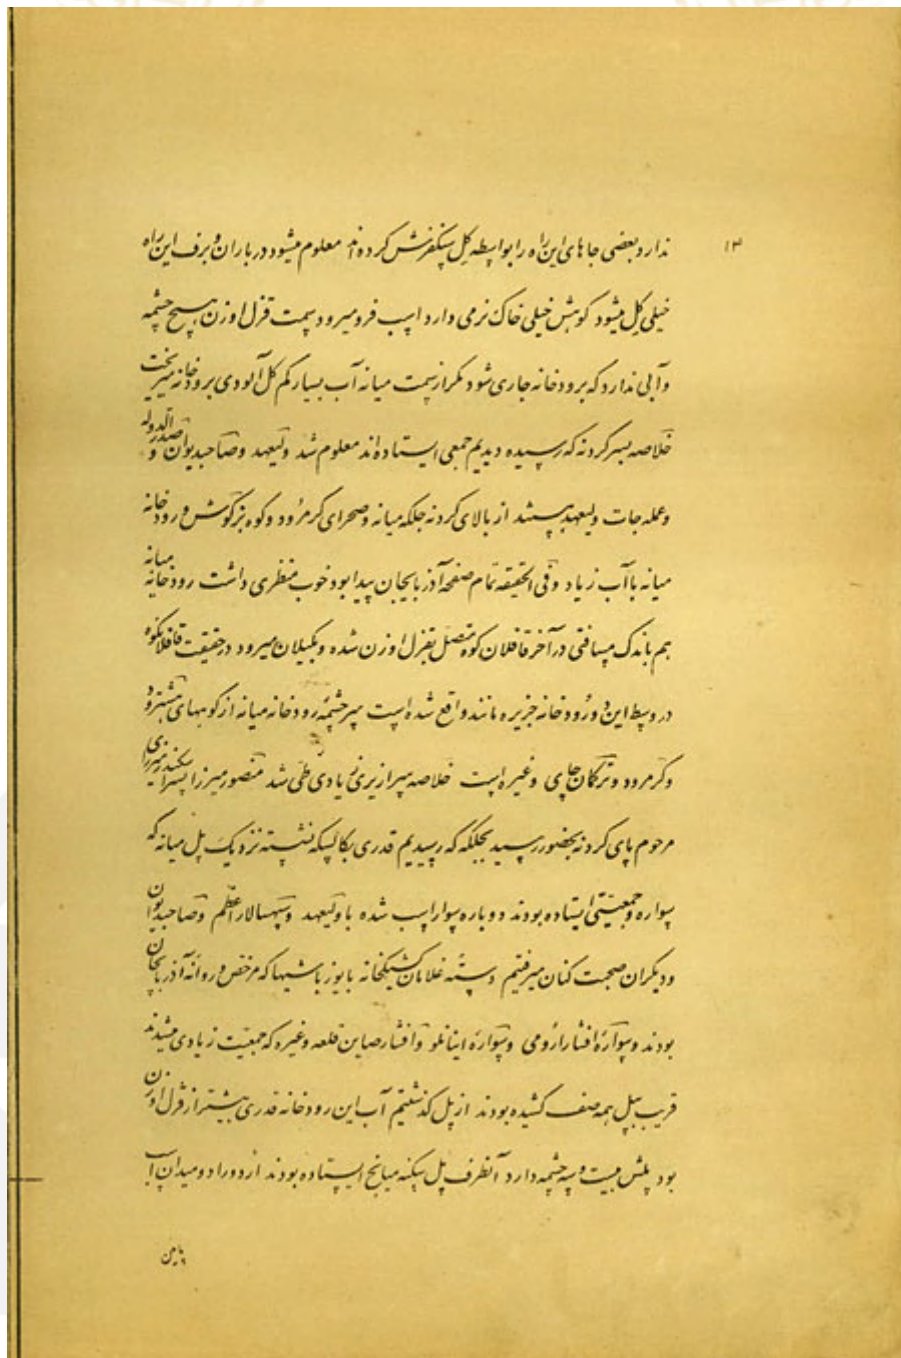 ۱۳
ندارد بعضی جاهای این راه را بواسطه گل سنگفرش کرده‌اند معلوم میشود در باران و برف این راه
خیلی گل میشود کوهش خیلی خاک نرمی دارد اسب فرو میرود سمت قزل اوزن هیچ چشمه
و آبی ندارد که برودخانه جاری شود مگر از سمت میانه آب بسیار کم گل آلودی برودخانه میریخت
خلاصه بسر گردنه که رسیده دیدیم جمعی ایستاده‌اند معلوم شد ولیعهد و صاحبدیوان و نصرالدوله
و عمله‌جات ولیعهد هستند از بالای گردنه جلگه میانه و صحرای گرمرود و کوه بزکوش و رودخانه
میانه با آب زیاد و فی الحقیقه تمام صفحه آذربایجان پیدا بود خوب منظری داشت رودخانه میانه
هم باندک مسافتی در آخر قافلان کوه متصل بقزل اوزن شده و بگیلان میرود در حقیقت قافلانکوه
در وسط این دو رودخانه جزیره مانند واقع شده است سرچشمه رودخانه میانه از کوههای هشترود
و گرمرود و ترکمان چای و غیره است خلاصه سرازیری زیادی طی شد منصور میرزا پسر اسکندر میرزای
مرحوم پای گردنه بحضور رسید بجلگه که رسیدیم قدری بکالسکه نشسته نزدیک پل میانه که
سواره و جمعیتی ایستاده بودند دوباره سوار اسب شده با ولیعهد و سپهسالار اعظم و صاحبدیوان
و دیگران صحبت کنان میرفتیم دسته غلامان کشیکخانه با یوزباشیها که مرخص و روانه آذربایجان
بودند و سواره افشار ارومی و سواره اینانلو و افشار صاین قلعه و غیره که جمعیت زیادی میشدند
قریب بپل همه صف کشیده بودند از پل گذشتیم آب این رودخانه قدری بیشتر از قزل اوزن
بود پلش بیست و سه چشمه دارد آنطرف پل سکنه میانج ایستاده بودند اردو را دو میدان اسب
پایین